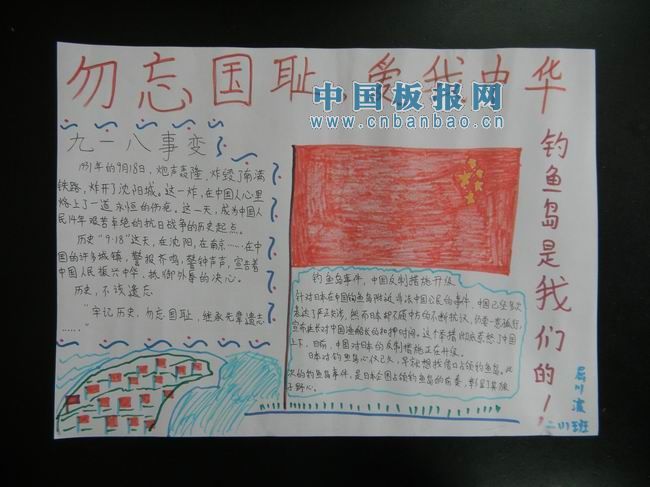 勿忘国耻、爱我中华
中国板报网
www.cnbanbao.cn
九一八事变
1931年的9月18日，炮声轰隆，炸毁了南满
铁路，炸开了沈阳城。这一炸，在中国人心里
烙上了一道永恒的伤疤。这一天，成为中国人
民14年艰苦卓绝的抗日战争的历史起点。
历史"9·18"这天，在沈阳，在南京……在中
国的许多城镇，警报齐鸣，警钟声声，宣告着
中国人民振兴中华、抵御外辱的决心。
历史，不该遗忘
"牢记历史，勿忘国耻，继承先辈遗志
……"
钓鱼岛事件，中国反制措施升级
针对日本在中国钓鱼岛附近非法中国公民的事件，中国已经多次
表达了严正交涉，然而日本却不顾中方的不断抗议，仍一意孤行，
宣布延长对中国渔船船长的扣押时间。这个举措彻底惹怒了中国
上下，目前，中国对日本的反制措施正在升级。
日本对钓鱼岛心仪已久，早就想找借口占领钓鱼岛。此
次的钓鱼岛事件，是日本企图占领钓鱼岛的前奏，彰显了其狼
子野心。
钓鱼岛是我们的！
二(1)班